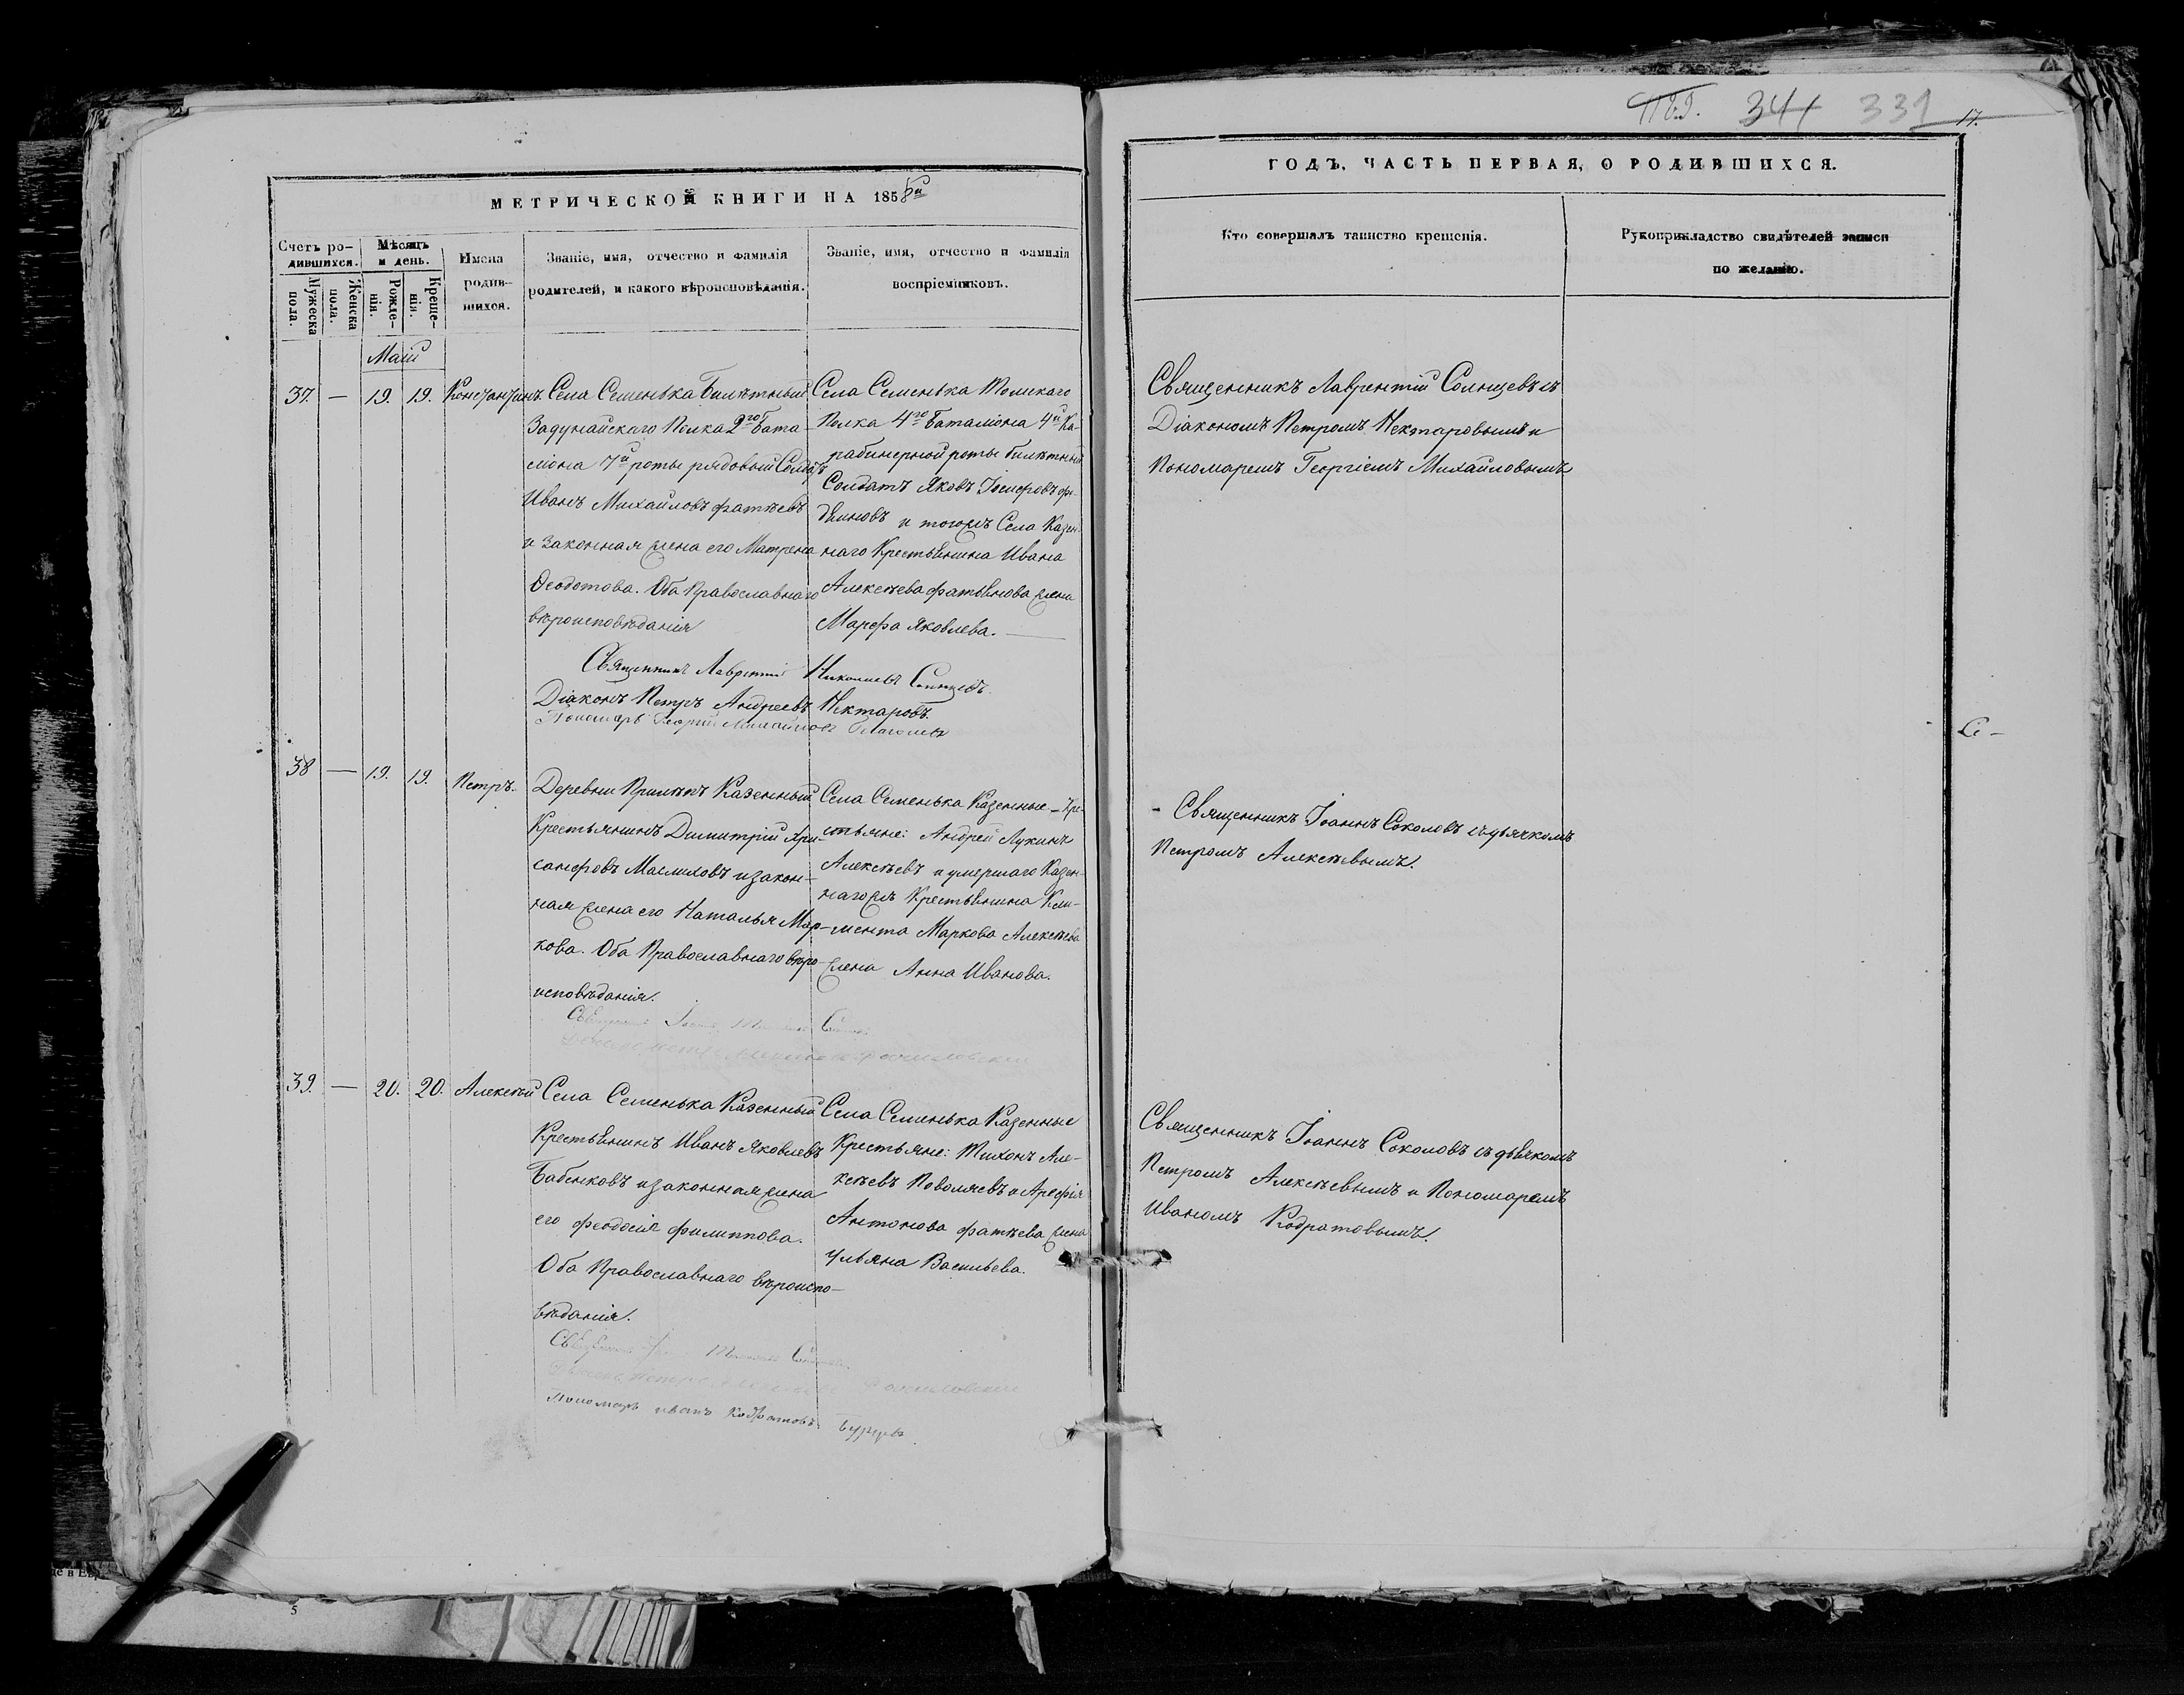 МЕТРИЧЕСКОЙ КНИГИ НА 1858й
Счетъ ро-
дившихся.
Мѣсяцъ
и день.
Мужеска
пола.
Женска
пола.
Рожде-
нія.
Креще-
нія.
Имена
родив-
шихся.
Званіе, имя, отчество и фамилія
родителей, и какого вѣроисповѣданія.
Званіе, имя, отчество и фамилія
воспріемниковъ.
Маій
37. — 19. 19. Константинъ
Села Семенька Билѣтный
Задунайскаго Полка 2го Бата-
ліона 7й роты рядовый Солдатъ
Иванъ Михайловъ Фатѣевъ
и законная жена его Матрена
Ѳеодотова. Оба Православнаго
вѣроисповѣданія
Села Семенька
Полка 4го Баталіона 4й Ка-
рабинерной роты билѣтный
Солдатъ Яковъ Іосифовъ
и тогожъ Села Казен-
наго Крестьянина Ивана
Алексѣева жена
Марфа Яковлева.
Священникъ Лаврентій Николаевъ Солнцевъ.
Діаконъ Петръ Андреевъ Нектаровъ.
Пономарь Георгій Михайловъ
38 — 19. 19. Петръ.
Деревни Казенный
Крестьянинъ Димитрій Хри-
санфовъ Маслиховъ и закон-
ная жена его Наталья Мар-
кова. Оба Православнаго вѣро-
исповѣданія.
Села Семенька Казенные Кре-
стьяне: Андрей Лукинъ
Алексѣевъ и умершаго Казен-
нагожъ Крестьянина Кли-
мента Маркова Алексѣева
жена Анна Иванова.
39. — 20. 20. Алексѣй
Села Семенька Казенный
Крестьянинъ Иванъ Яковлевъ
Бабенковъ и законная жена
его Феодосія Филиппова.
Оба Православнаго вѣроиспо-
вѣданія.
Села Семенька Казенные
Крестьяне: Тихонъ Але-
ксѣевъ Поволяевъ и Арефія
Антонова Фатѣева жена
Ульяна Васильева.
Пономарь Иванъ Кодратовъ
341 331 17.
ГОДЪ, ЧАСТЬ ПЕРВАЯ, О РОДИВШИХСЯ.
Кто совершалъ таинство крещенія.
Рукоприкладство свидѣтелей записи
по желанію.
Священникъ Лаврентій Солнцевъ съ
Діакономъ Петромъ Нектаровымъ и
Пономаремъ Георгіемъ Михайловымъ
Священникъ Іоаннъ Соколовъ съ дьячкомъ
Петромъ Алексѣевымъ.
Священникъ Іоаннъ Соколовъ съ дьячкомъ
Петромъ Алексѣевымъ и Пономаремъ
Иваномъ Кодратовымъ.
5